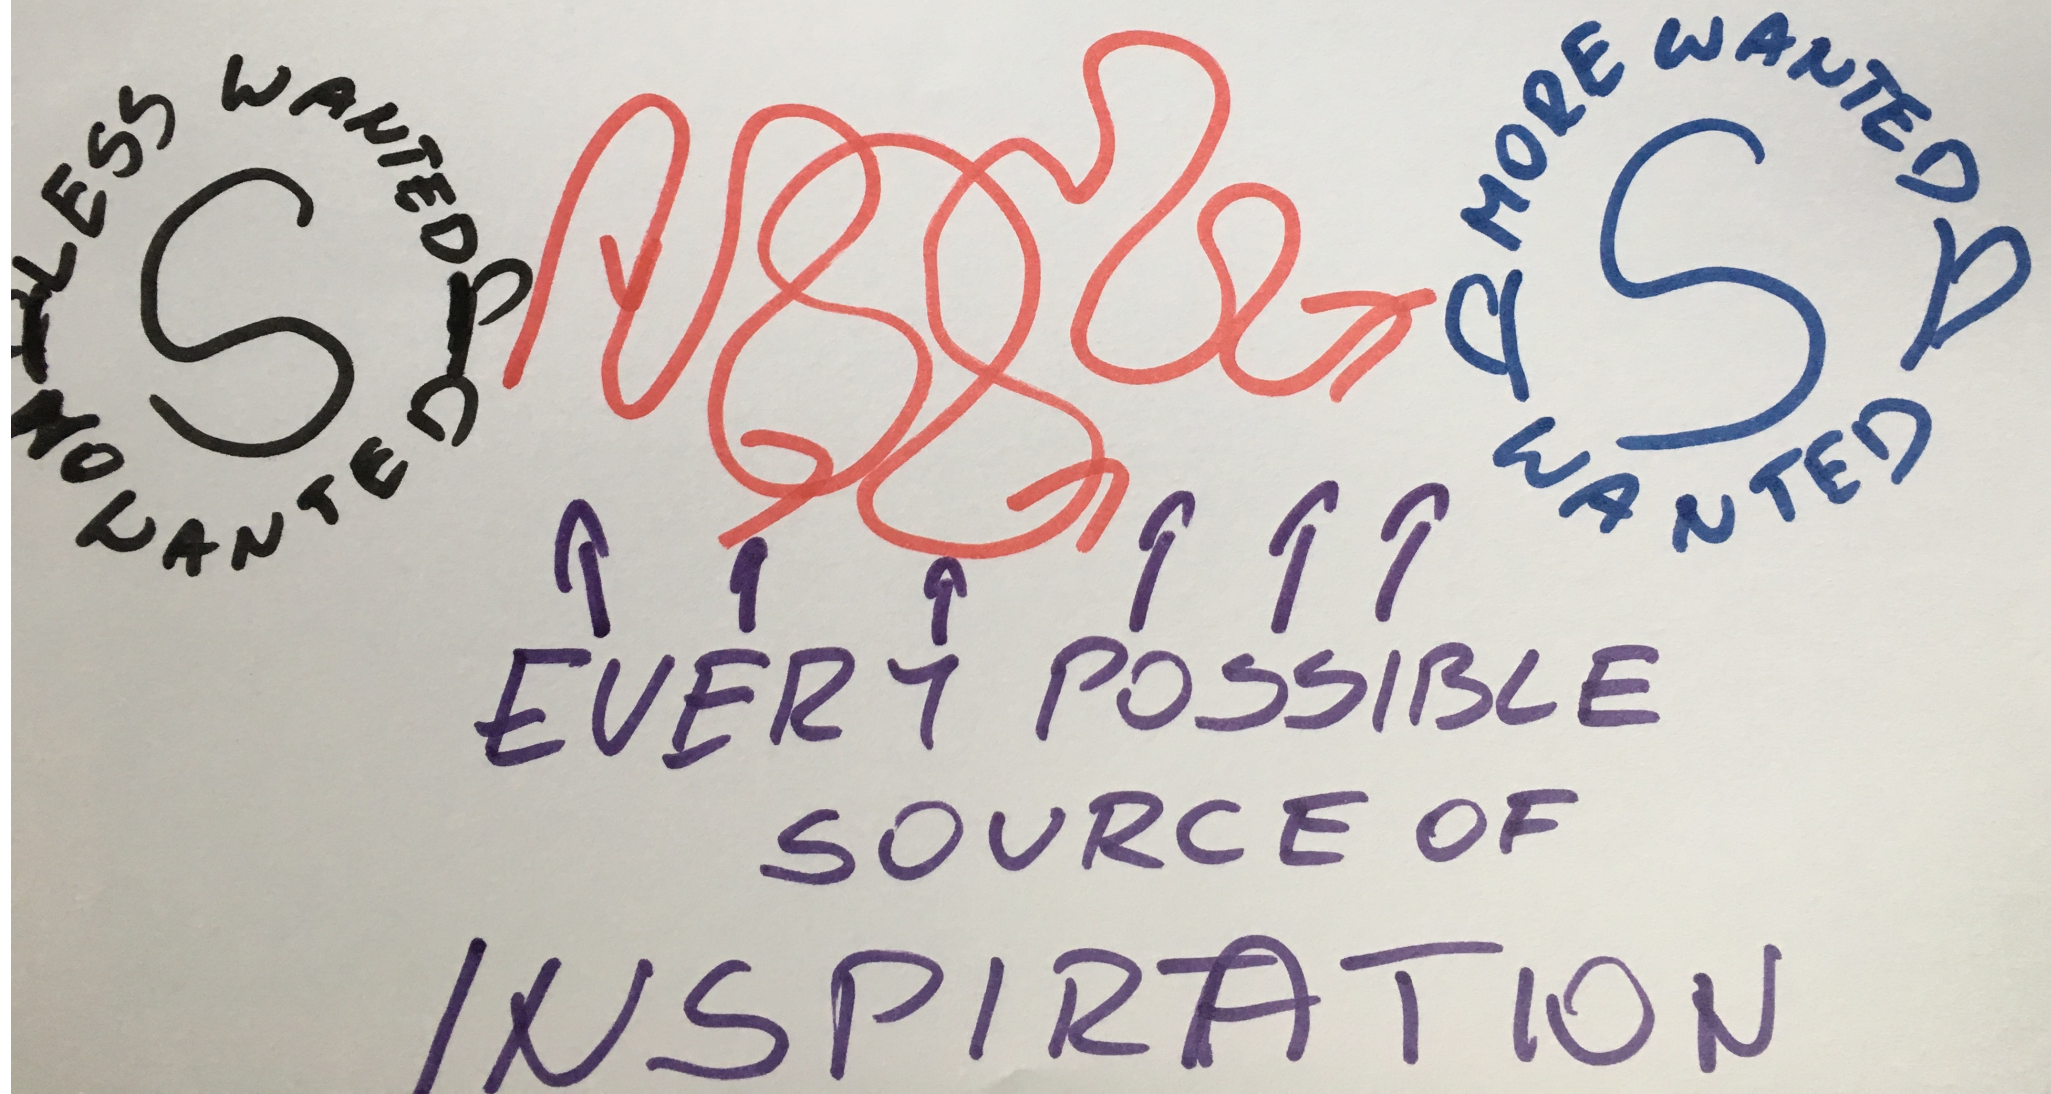 LESS WANTED
S
NO WANTED
MORE WANTED
S
WANTED
EVERY POSSIBLE
SOURCE OF
INSPIRATION